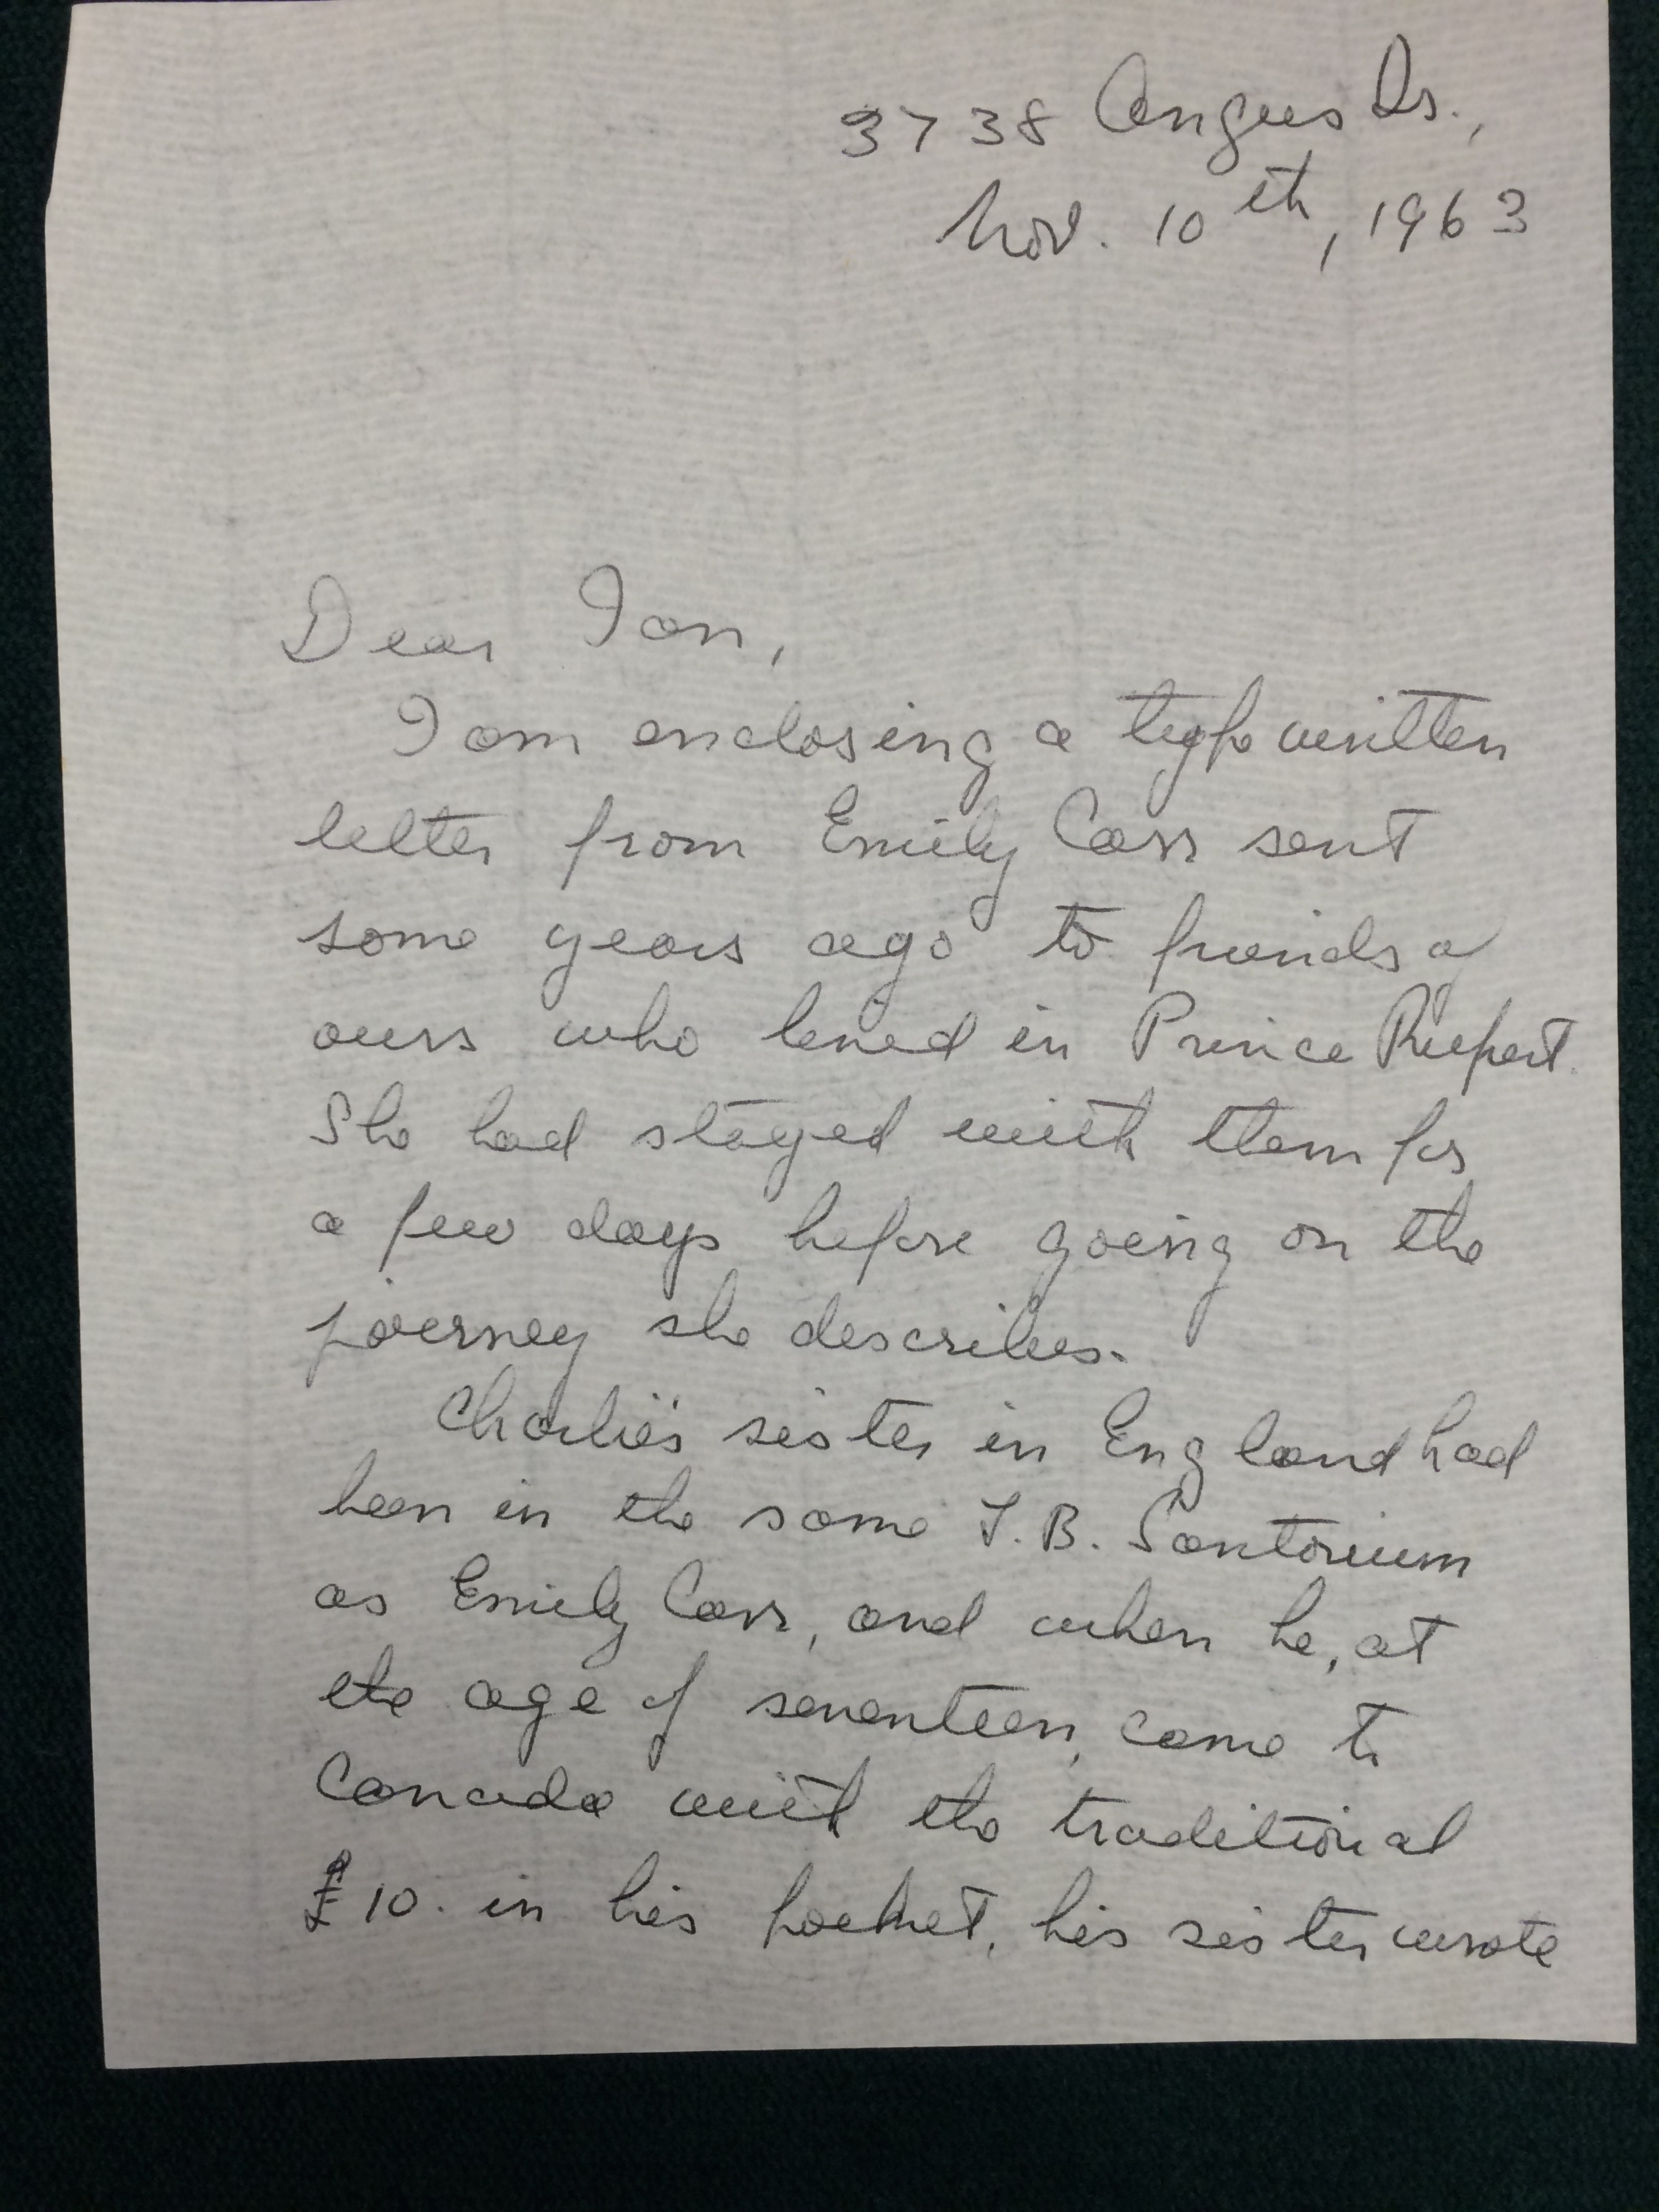 3738 Angus Dr.,
Nov. 10th, 1963
Dear Ian,
I am enclosing a typewritten
letter from Emily Carr sent
some years ago to friends of
ours who lived in Prince Rupert.
She had stayed with them for
a few days before going on the
journey she describes.
Charlie's sister in England had
been in the same T.B. Santorium
as Emily Carr, and when he, at
the age of seventeen, came to
Canada with the traditional
£10. in his pocket, his sister wrote